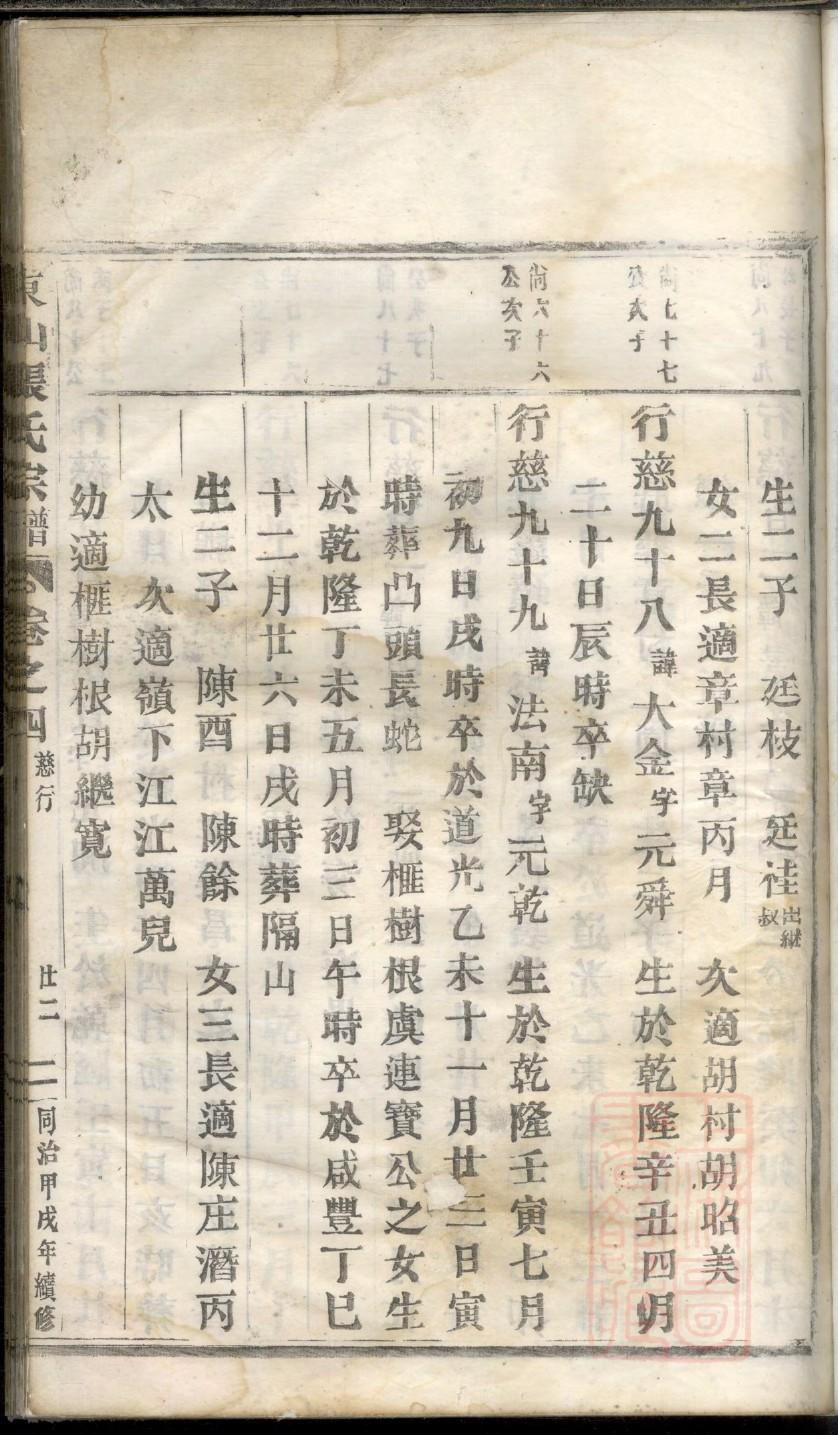 生二子　廷枝　廷桂出繼叔
女二長適章村章丙月　次適胡村胡昭美
尚七十七公次子
行慈九十八諱大金字元舜　生於乾隆辛丑四月
二十日辰時卒缺
尚六十六公次子
行慈九十九諱法南字元乾　生於乾隆壬寅七月
初九日戌時卒於道光乙未十一月廿三日寅
時葬凸頭長蛇　娶榧樹根虞連寶公之女生
於乾隆丁未五月初三日午時卒於咸豐丁巳
十二月廿六日戌時葬隔山
生二子　陳酉　陳餘　女三長適陳庄潘丙
太　次適嶺下江江萬兒
幼適榧樹根胡繼寬
東山張氏宗譜　卷之四　慈行　廿二　同治甲戌年續修